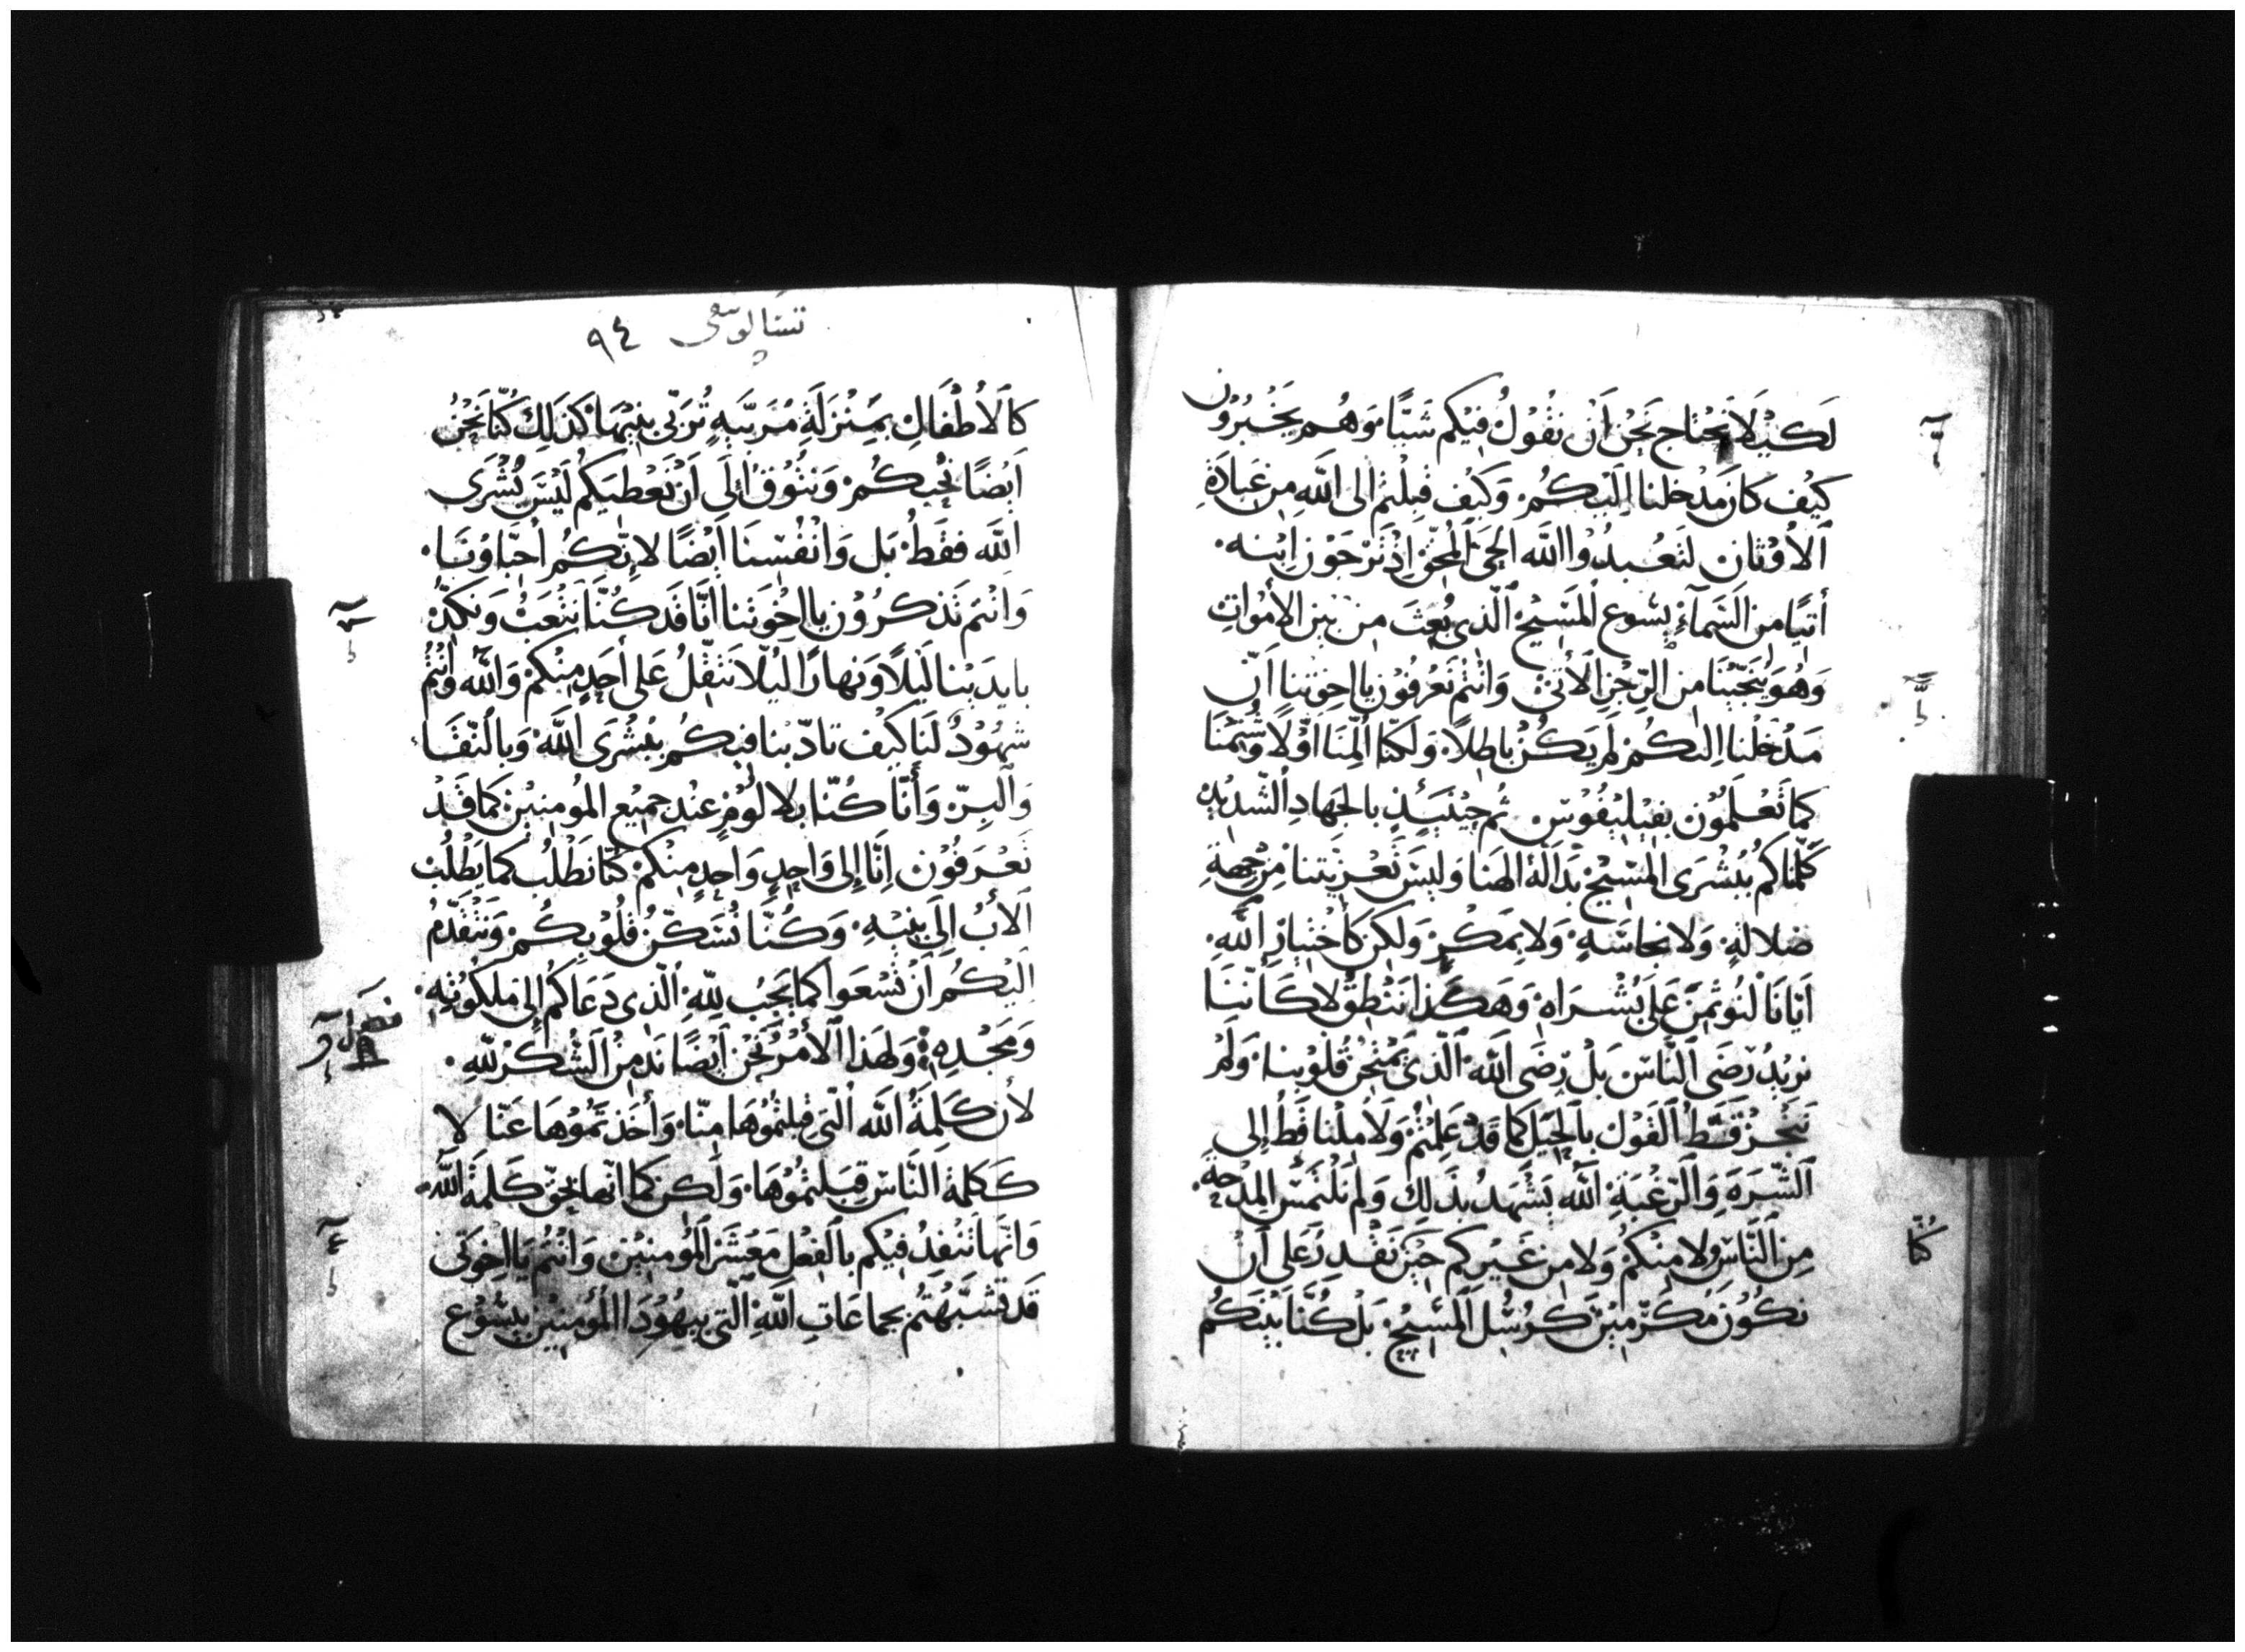 لَكَيْلَا نَحْتَاج نَحْنُ اَنْ نَقُوْلُ فِيْكُم شَيًّا وَهُم يَخْبُرُوْن
كَيْف كَانَ مَدْخَلنا اِلَيْكُمْ وَكَيْف قبلْتم الى اَللّٰه مِن عَبادَةِ
اَلأَوْثان لتَعْبدُوْا اللّٰه الحَيّ المُحقّ اِذْ تَرْجَوْن اِبْنه
أتيًا من السَّمآءِ يسُوع المَسَيْح الّذى بُعِثَ من بَين الأمْواتِ
وَهُوَ يُنَجّيْنَا من الرِّجْز الأتىْ وَانْتم تَعْرفُوْن يا اخوتنا اَنّ
مَدْخَلْنا اِليكُم لَم يَكُنْ باطِلًا وَلَكنّا اُلِّمنَا اَوّلًا وَشُتِمْنَا
كَما تَعْلَمُوْن بفيْلِيْبفُوْس ثم حِيْنَئِذٍ بالجَهادِ الشّدِيْدِ
كَلَّمْناكُم ببُشْرَى المَسِيْح بدَالَّةِ الهَنا وَليسَ تَعْزيَتنا مِنْ جِهةِ
ضلالةٍ وَلا نجاسَةٍ وَلا بمَكْرٍ وَلكن كَأختِبارِ اللّٰهِ
اَيّانَا لنُوتمَن عَلَى بُشْرَاهُ وَهَكَذا نَنْطِقُ لا كَاَنّنَا
نرِيْدُ رضَى النّاسَ بَلْ رِضَى اَللّٰه الّذى يَمْتحِن قُلُوْبنا وَلَم
نَنْحُزْ قَطُّ القَوْل بالحِيَل كَما قَدْ عَلِمْتُم وَلا مِلْنا قَطُ إِلى
الشّرَهَ وَالرّغْبَةِ اللّٰه يَشْهَدُ بذَلِكَ وَلم نَلْتَمسْ المِدْحَة
مِن النّاسُ وَلا مِنْكُمُ وَلا مِن غَيْركم حَيْن نَقْدِرُ عَلى أنْ
نكُوْنَ مُكَرَّمِيْنَ كَرسُلِ المَسِيْحِ بَلْ كُنَّا بَيْنَكُم
كُنّا
تسالونيقى ٩٤
كالاَطْفَالِ بمَنْزلَةِ مُرَبّيَهٍ تُرَبّى بنِيْهَا كَذَلِكَ كُنّا نَحْنُ
اَيْضًا نُحِبكُم وَنتُوْقُ إِلَى اَنْ نَعْطيَكُم لَيْسَ بُشْرَى
اللّٰه فقَطُ بَل وَانْفُسنَا اَيْضًا لانّكُم أحِبّاؤنَا
وَانْتم تَذكرُوْن يا اخْوَتنا اَنّا قَد كُنّا نَتْعَبُ وَنَكدُّ
بايدَيْنا لَيْلًا وَنهارًا ليْلّا نَثقّلُ عَلى أحَدٍ مِنْكُم وَاللّٰه وَانْتُم
شهُوْدٌ لَنَا كَيْف تادّبْنا فيكُم ببُشْرَى اللّٰه وَبالنّقَا
وَالبِرّ وَأنّا كُنّا بلا لَوْمٍ عنْد جَمِيْع المُومنِيْن كَما قَدْ
تَعْرَفُوْن اِنّا إِلى وَاحِدٍ وَاحدٍ مِنْكُم كُنّا نَطْلُب كما يَطْلُبُ
الأَبُ اِلَى بَنِيْهِ وَكُنّا نُسَكّنُ قُلُوْبكُم وَنَتَقَدّمُ
اِلَيْكُم اَنْ تَسْعَوا كَما يَجِبُ للّٰهِ الّذى دَعَاكُم إِلى مَلَكُوْتِهِ
وَمَجْدِهِ وَلهذَا الأمْر نَحْن اَيْضًا نَدمِنْ الشّكْر للّٰهِ
لأن كَلِمَةُ اللّٰه الّتى قبلْتمُوْهَا مِنّا وَأخَذتمُوْهَا عَنّا لا
كَكَلمةِ النّاسِ قبَلتمُوْهَا وَلَكن كَما انّها بحقّ كَلمَةُ اللّٰه
وَانّها تَنْفدُ فِيْكُم بالفعْل مَعْشَرَ المُومنِيْن وَانْتُم يَا اخْوَتى
قَد تشَبّهْتُم بجماعَاتِ اللّٰهِ الّتى بيهُوْدَا المُؤمنِيْن بيسُوْع
فصل